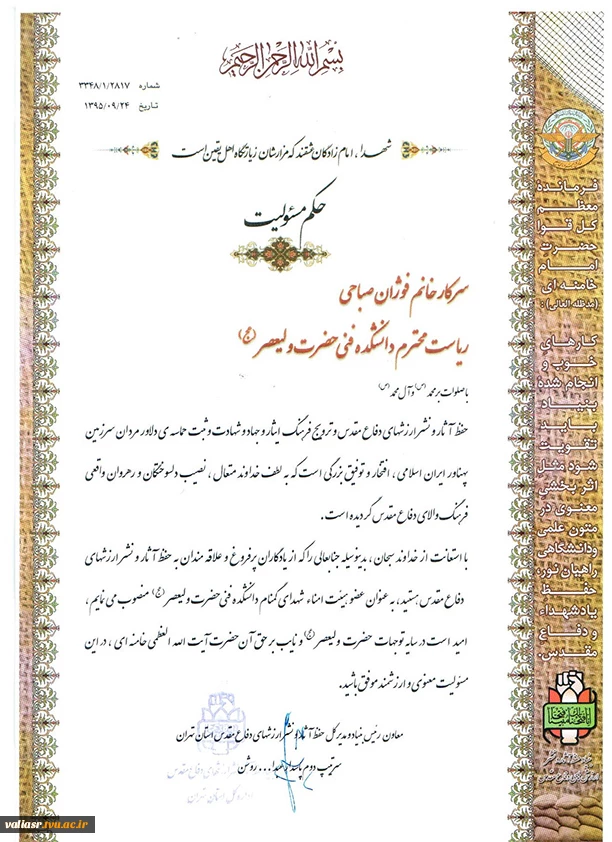 بسم الله الرحمن الرحیم
شماره ۳۳۴۸/۱/۲۸۱۷
تاریخ ۱۳۹۵/۰۹/۲۴
شهدا، امام زادگان عشقند که مزارشان زیارتگاه اهل یقین است
حکم مسئولیت
سرکار خانم فوژان صباحی
ریاست محترم دانشکده فنی حضرت ولیعصر (عج)
با صلوات بر محمد (ص) و آل محمد (ص)
حفظ آثار و نشر ارزشهای دفاع مقدس و ترویج فرهنگ ایثار و جهاد و شهادت و ثبت حماسه ی دلاور مردان سرزمین
پهناور ایران اسلامی، افتخار و توفیق بزرگی است که به لطف خداوند متعال، نصیب دلسوختگان و رهروان واقعی
فرهنگ والای دفاع مقدس گردیده است.
با استعانت از خداوند سبحان، بدینوسیله جنابعالی را که از یادگاران پرفروغ و علاقه مندان به حفظ آثار و نشر ارزشهای
دفاع مقدس هستید، به عنوان عضو هیئت امناء شهدای گمنام دانشکده فنی حضرت ولیعصر (عج) منصوب می نمایم،
امید است در سایه توجهات حضرت ولیعصر (عج) و نایب بر حق آن حضرت آیت الله العظمی خامنه ای، در این
مسئولیت معنوی و ارزشمند موفق باشید.
معاون رئیس بنیاد و مدیر کل حفظ آثار و نشر ارزشهای دفاع مقدس استان تهران
سرتیپ دوم پاسدار عبدا... روشن
اداره کل استان تهران
فرماندۀ
معظم
کل قوا
حضرت
امام
خامنه ای
(مدظله العالی):
کارهای
خوب و
انجام شده
بنیاد
باید
تقویت
شود مثل
اثر بخشی
معنوی در
متون علمی
ودانشگاهی
راهیان نور،
حفظ
یاد شهداء
و دفاع
مقدس.
valiasr.tvu.ac.ir